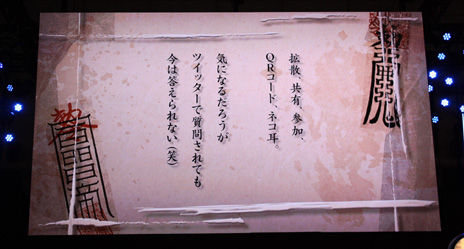 拡散、共有、参加、
QRコード、ネコ耳。
気になるだろうが
ツイッターで質問されても
今は答えられない（笑）